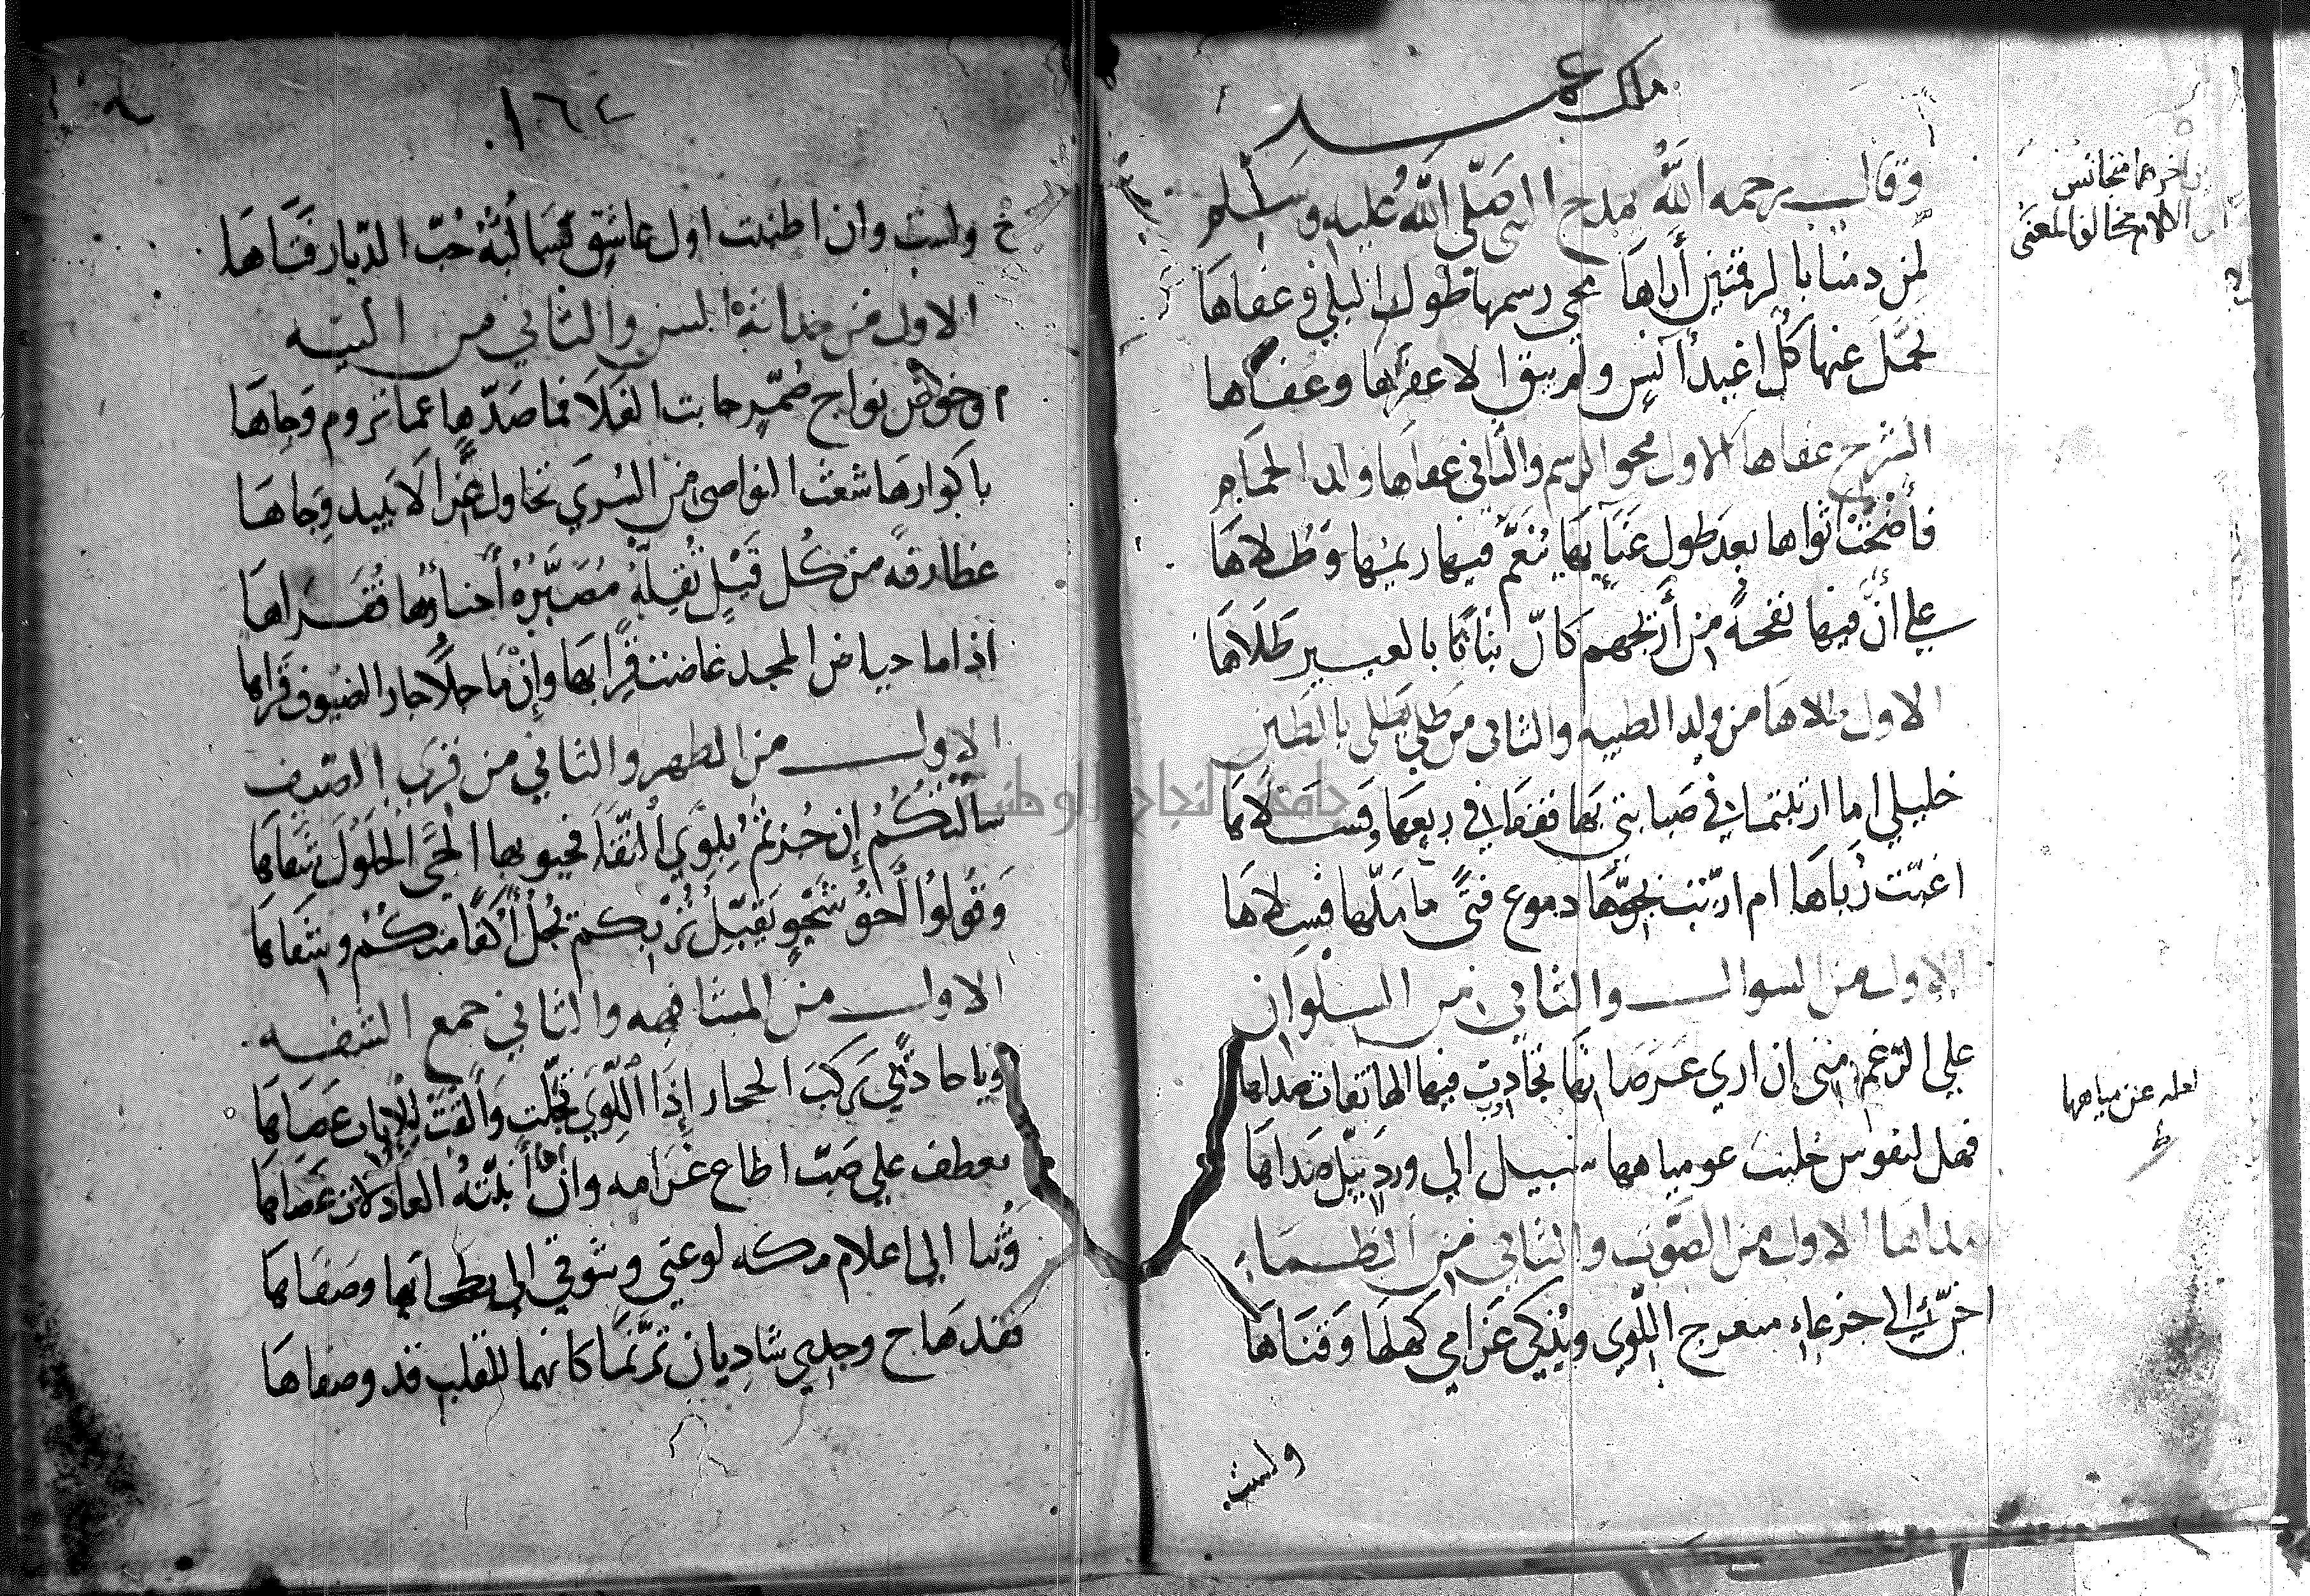 ملك عمر
وقال يرحمه الله يمدح النبي صلى الله عليه وسلم
لمن دمنا بالرقمتين أراها محى رسمها طول البلى وعفاها
تحمّل عنها كلّ اغيد آنس ولم يبق الا عفرها وعفاها
الشرح عفاها الاول محو الرسم والثاني عفاها ولد الحمار
فأضحت ثواها بعد طول غنائها ينعّم فيها ريمها وطلاها
على أنّ فيها نفحة من أريجهم كأنّ بنانا بالعبير طلاها
الاول طلاها من ولد الظبيه والثاني من طلى يطلى بالطين
خليلي اما ارتبتما في صبابتي بها فقفا في ربعها وسلاها
اغبّت رباها ام اربّت بجوّها دموع فتًى ما ملّها فسلاها
الاول من السوال والثاني من السلوان
علي الرّغم منى ان اري عرصاتها تجاوب فيها الهاتفات صداها
فهل لنفوس خلیت عو میاهها سبيل الي ورد يبلّ صداها
صداها الاول من الصوت والثاني من الظماء
احنّ الى جزعاء منعرج اللّوى ويذكي غرامي كهلها وفتاها
ولست
ن اخرهما متجانس
الكلام مخالف المعنى
لعله عن مياهها
ظ
١٦٤
خ ولست وان اطنبت اول عاشق تسألبته حبّ الديار فتاها
الاول من حداثة السن والثاني من التيه
وخوص نواج ضمّر جابت الفلا فما صدّها عما تروم وجاها
باكوارها شعث النواصى من السّري تحاول عزا لا يبيد وجاها
غطارفة من كل قيل
اذا ما حياض المجد غاضت قرابها وإن ما حلا جار الضيوف قراها
الاول من الظهر والثاني من قرى الضيف
سألتكم إن جزتم بلوى النّقا فحيو بها الحيّ الحلول شفاها
وقولوا أخو شجو يقبّل تربكم تجل أكفّا منكم وشفاها
الاول من المشافهه والثاني جمع الشفه
ويا حاديي ركب الحجاز إذا اللّوى تجلّت وألقت للإياب عصاها
بعطف علي صبّ اطاع غرامه وان أنّبته العاذلات عصاها
وثبا الي اعلام مكه لوعتي وشوقي الى بطحائها وصفاها
فقد هاج وجدي شاديان ترنّما كانهما للقلب قد وصفاها
جامعة النجاح الوطنية